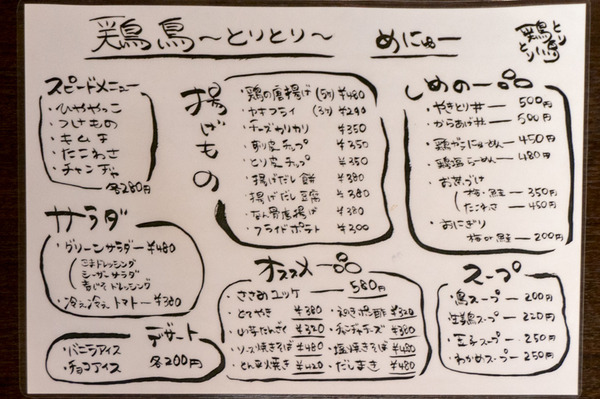 鶏鳥〜とりとり〜 めにゅー
鶏鳥
とり
とり
スピードメニュー
・ひややっこ
・つけもの
・キムチ
・たこわさ
・チャンヂャ
各280円
サラダ
・グリーンサラダー ¥480
ごまドレッシング
シーザーサラダ
青じそドレッシング
・冷え冷えトマトー ¥380
デザート
・バニラアイス
・チョコアイス
各200円
揚げもの
・鶏の唐揚げ (5ヶ) ¥480
・ヤキフライ (3ヶ) ¥290
・チーズカリカリ ¥350
・ずり皮チップ ¥350
・とり皮チップ ¥350
・揚げだし餅 ¥380
・揚げだし豆腐 ¥380
・なん骨唐揚げ ¥380
・フライドポテト ¥200
オススメ一品
・ささみユッケ — 580円
・とてやき ¥380
¥320
・ソース焼きそば ¥480
・とん平焼き ¥420
・ねぎポン酢 ¥320
¥380
・塩焼きそば ¥480
・だしまき ¥480
しめの一品
・やきとり丼 — 500円
・からあげ丼 — 500円
・鶏がらにゅーめん — 450円
・鶏塩らーめん — 480円
・お茶づけ
梅・鮭 — 350円
たこわさ — 450円
・おにぎり
梅or鮭 — 200円
スープ
・鳥スープ — 200円
・生姜鶏スープ — 220円
・玉子スープ — 250円
・わかめスープ — 250円